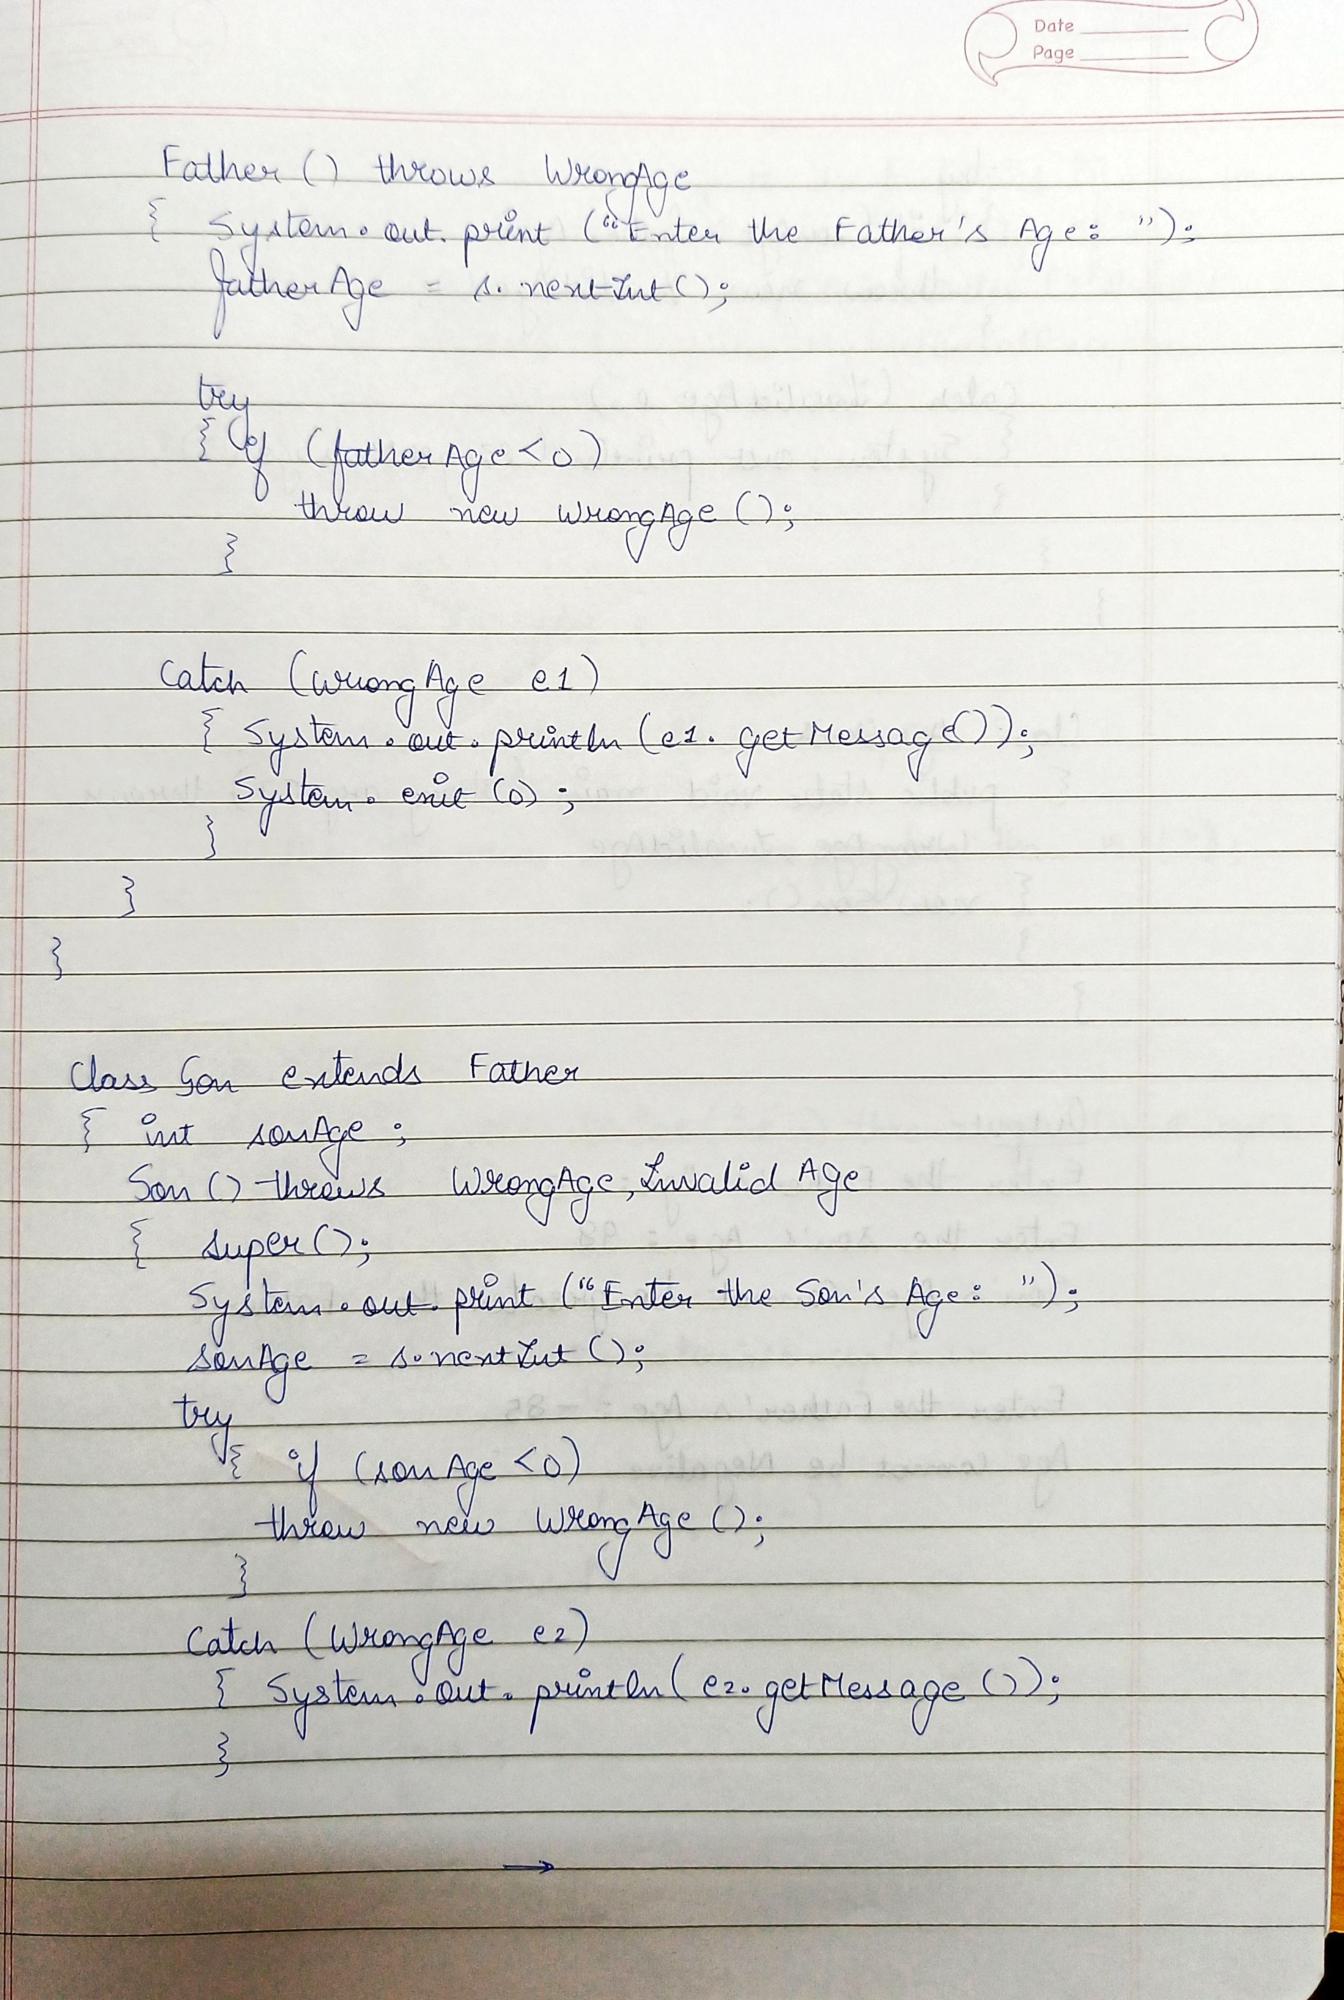 Date
Page
Father () throws WrongAge
{ System.out.print ("Enter the Father's Age: ");
fatherAge = s.nextInt();
try
{ if (fatherAge<0)
throw new WrongAge ();
}
Catch (WrongAge e1)
{ System.out.println (e1.getMessage());
System.exit (0);
}
}
}
Class Son extends Father
{ int sonAge;
Son () throws WrongAge, Invalid Age
{ super();
System.out.print ("Enter the Son's Age: ");
sonAge = s.nextInt ();
try
{ if (sonAge <0)
throw new WrongAge ();
}
Catch (WrongAge e2)
{ System.out.println( e2.getMessage ());
}
→